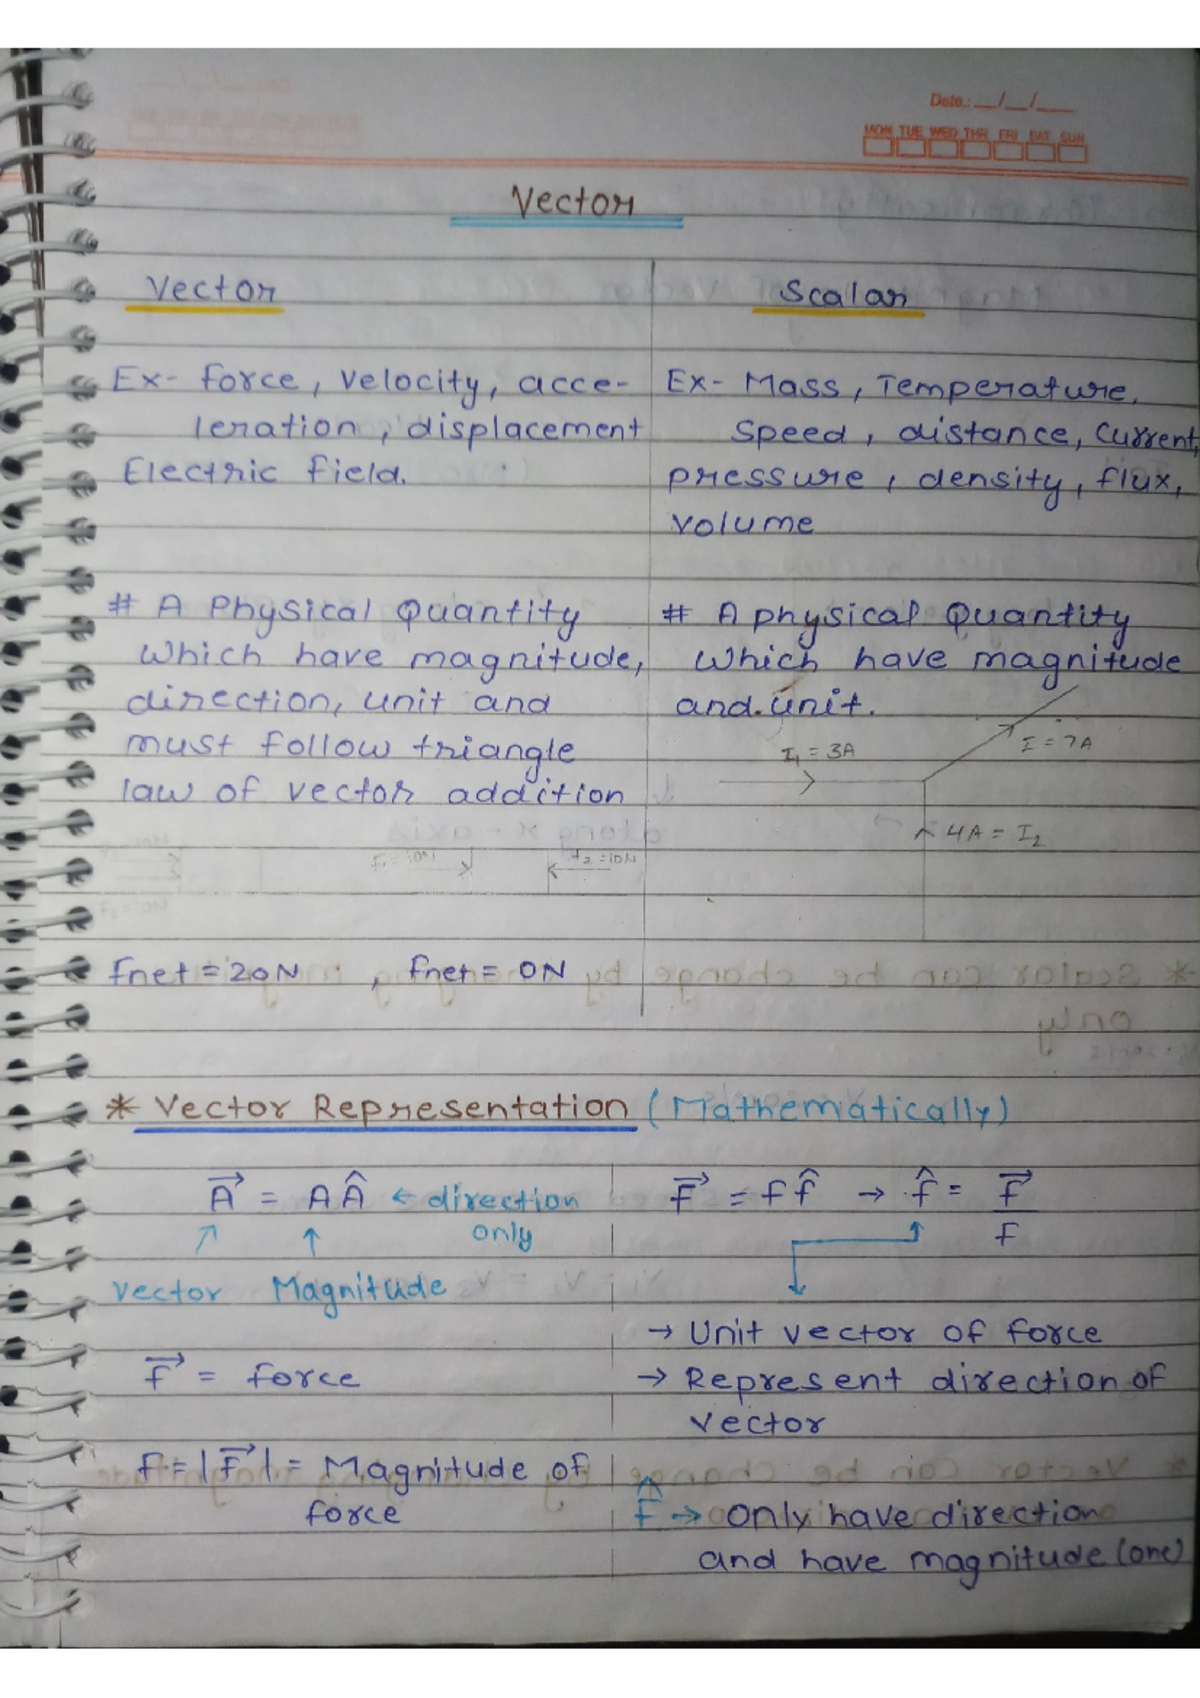 Date.: __/__/____
MON TUE WED THR FRI SAT SUN
Vector
Vector
Ex- force, velocity, acce-
leration, displacement
Electric field.
# A Physical Quantity
which have magnitude,
direction, unit and
must follow triangle
law of vector addition
F₂ = 10N
Fnet = 20N , Fnet = 0N
Scalar
Ex- Mass, Temperature,
speed, distance, current,
pressure, density, flux,
volume
# A physical Quantity
which have magnitude
and unit.
I₁ = 3A
I = 7A
4A = I₂
* Vector Representation (Mathematically)
A⃗ = A Â ← direction
only
↗ ↑
Vector Magnitude
F⃗ = force
f = |F⃗| = Magnitude of
force
F⃗ = f f̂ → f̂ = F⃗/F
→ Unit vector of force
→ Represent direction of
vector
F̂ → only have direction
and have magnitude (one)